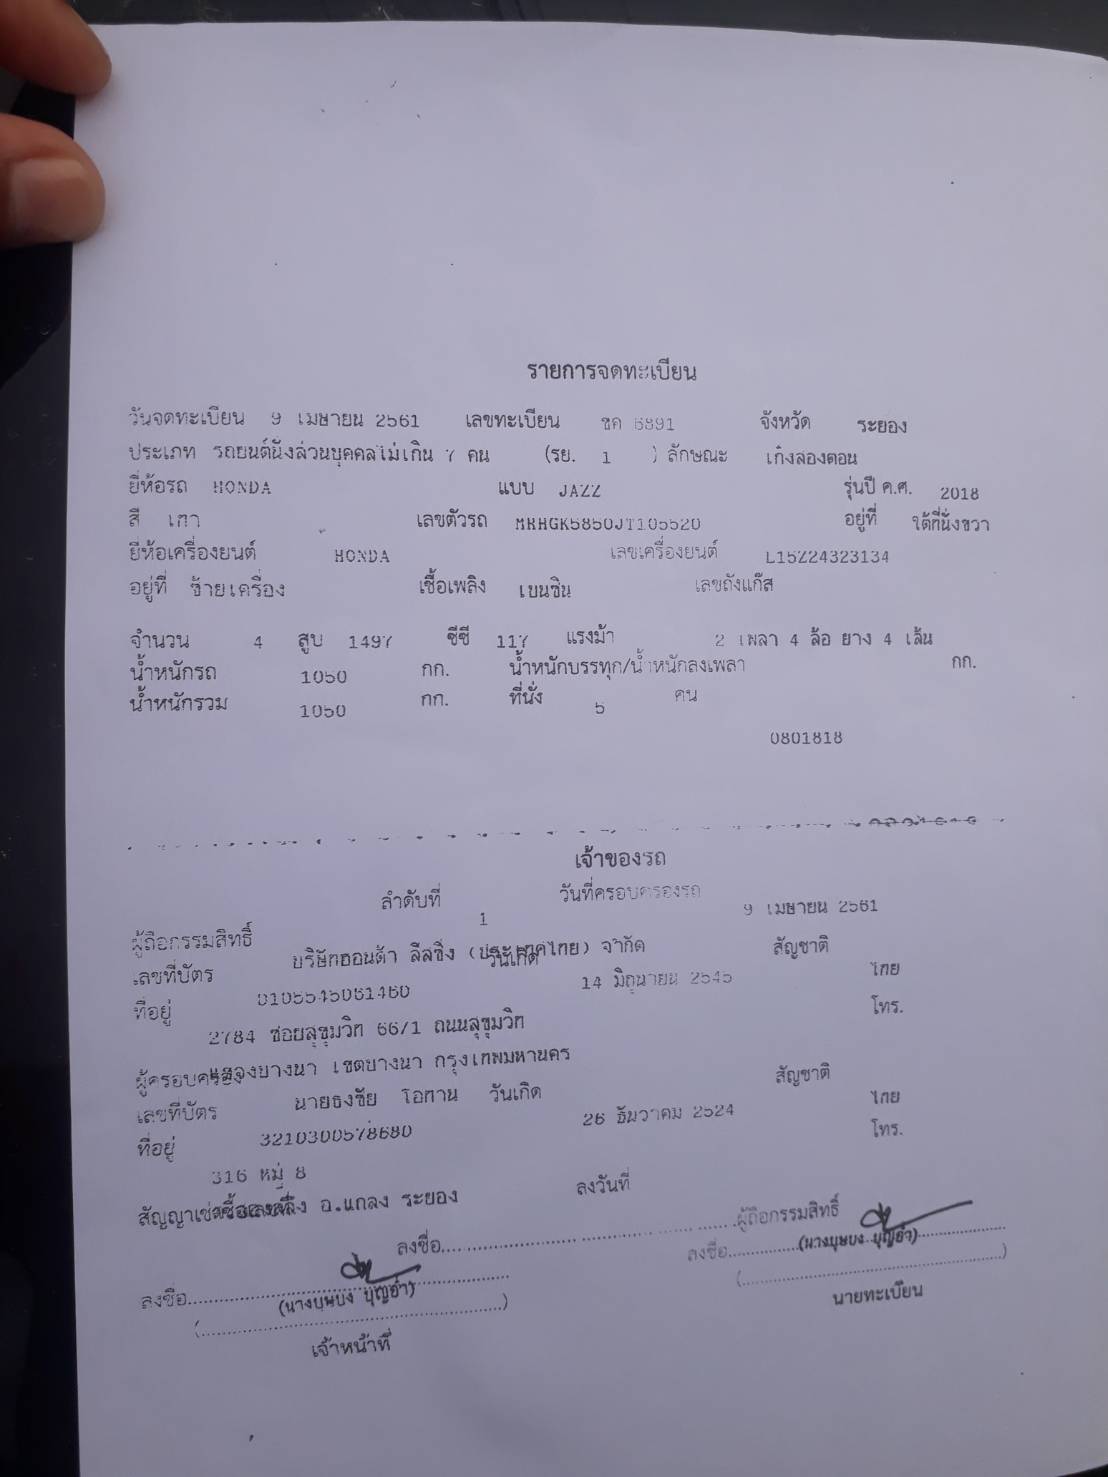 รายการจดทะเบียน
วันจดทะเบียน 9 เมษายน 2561 เลขทะเบียน ขค 6891 จังหวัด ระยอง
ประเภท รถยนต์นั่งส่วนบุคคลไม่เกิน 7 คน (รย. 1 ) ลักษณะ เก๋งสองตอน
ยี่ห้อรถ HONDA แบบ JAZZ รุ่นปี ค.ศ. 2018
สี เทา เลขตัวรถ MRHGK5850JT105520 อยู่ที่ ใต้ที่นั่งขวา
ยี่ห้อเครื่องยนต์ HONDA เลขเครื่องยนต์ L15Z24323134
อยู่ที่ ซ้ายเครื่อง เชื้อเพลิง เบนซิน เลขถังแก๊ส
จำนวน 4 สูบ 1497 ซีซี 117 แรงม้า 2 เพลา 4 ล้อ ยาง 4 เส้น
น้ำหนักรถ 1050 กก. น้ำหนักบรรทุก/น้ำหนักลงเพลา กก.
น้ำหนักรวม 1050 กก. ที่นั่ง 5 คน
0801818
เจ้าของรถ
ลำดับที่ 1 วันที่ครอบครองรถ 9 เมษายน 2561
ผู้ถือกรรมสิทธิ์ บริษัทฮอนด้า ลีสซิ่ง (ประเทศไทย) จำกัด สัญชาติ ไทย
เลขที่บัตร 0105545061460 วันเกิด 14 มิถุนายน 2545
ที่อยู่ 2784 ซอยสุขุมวิท 66/1 ถนนสุขุมวิท โทร.
แขวงบางนา เขตบางนา กรุงเทพมหานคร
ผู้ครอบครอง นายธงชัย โอทาน สัญชาติ ไทย
เลขที่บัตร 3210300578680 วันเกิด 26 ธันวาคม 2524
ที่อยู่ 316 หมู่ 8 โทร.
อ.แกลง ระยอง
สัญญาเช่าซื้อเลขที่ ลงวันที่
ลงชื่อ ผู้ถือกรรมสิทธิ์
ลงชื่อ (นางบุษบง บุญอ่ำ) ลงชื่อ (นางบุษบง บุญอ่ำ)
เจ้าหน้าที่ นายทะเบียน